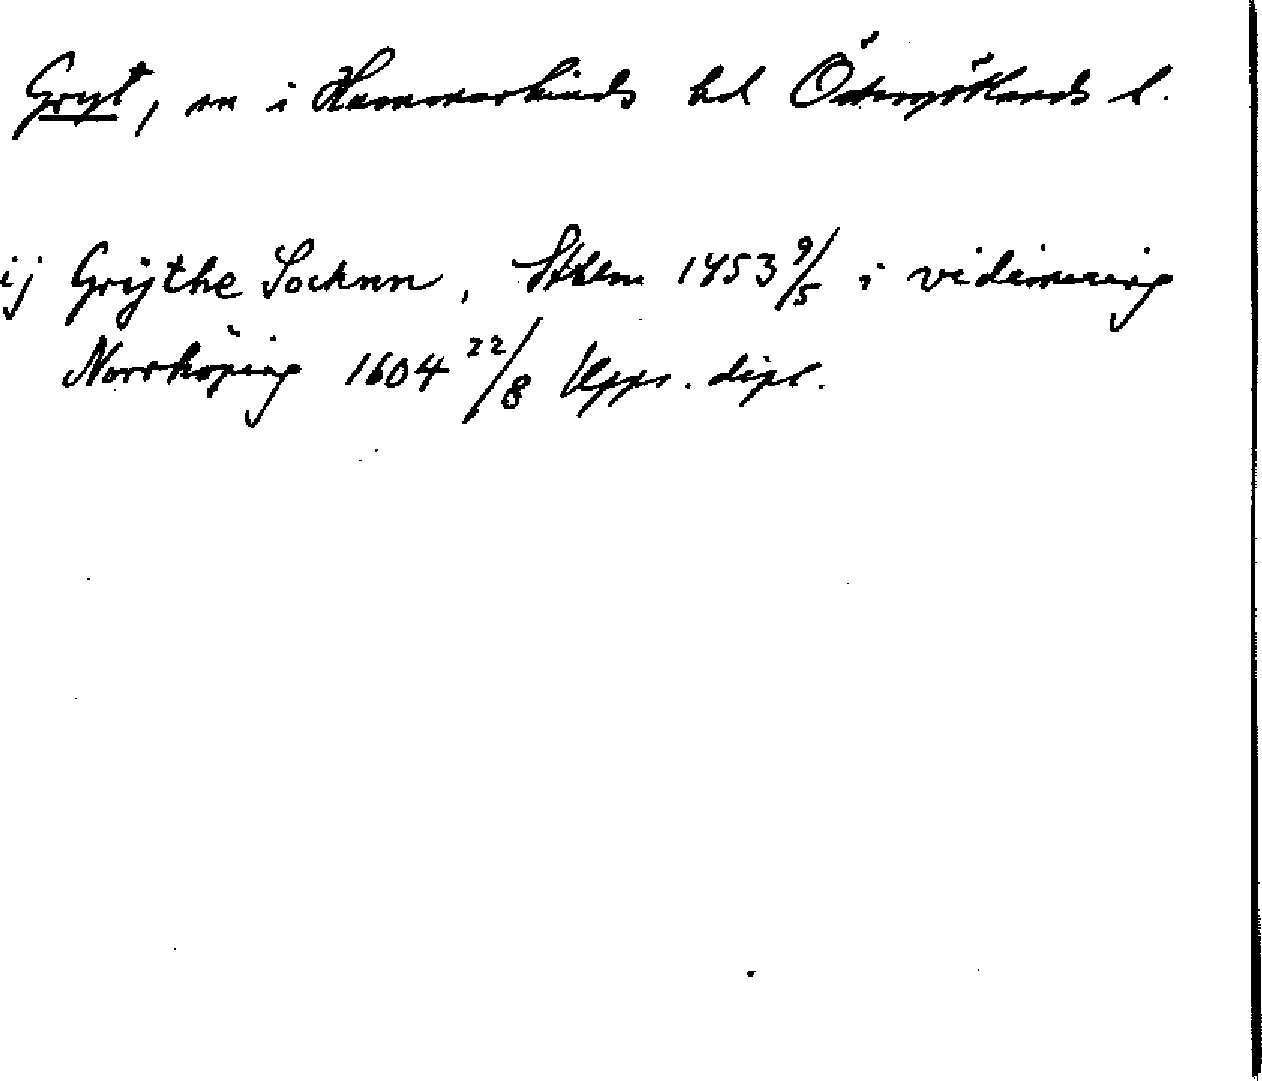 Gryt, sn i Hammarkinds hd Östergötlands l.
ij Grÿthe Socknn, Sthlm 1453 9/5 i vidimering
Norrköping 1604 22/8 Upps. dipl.